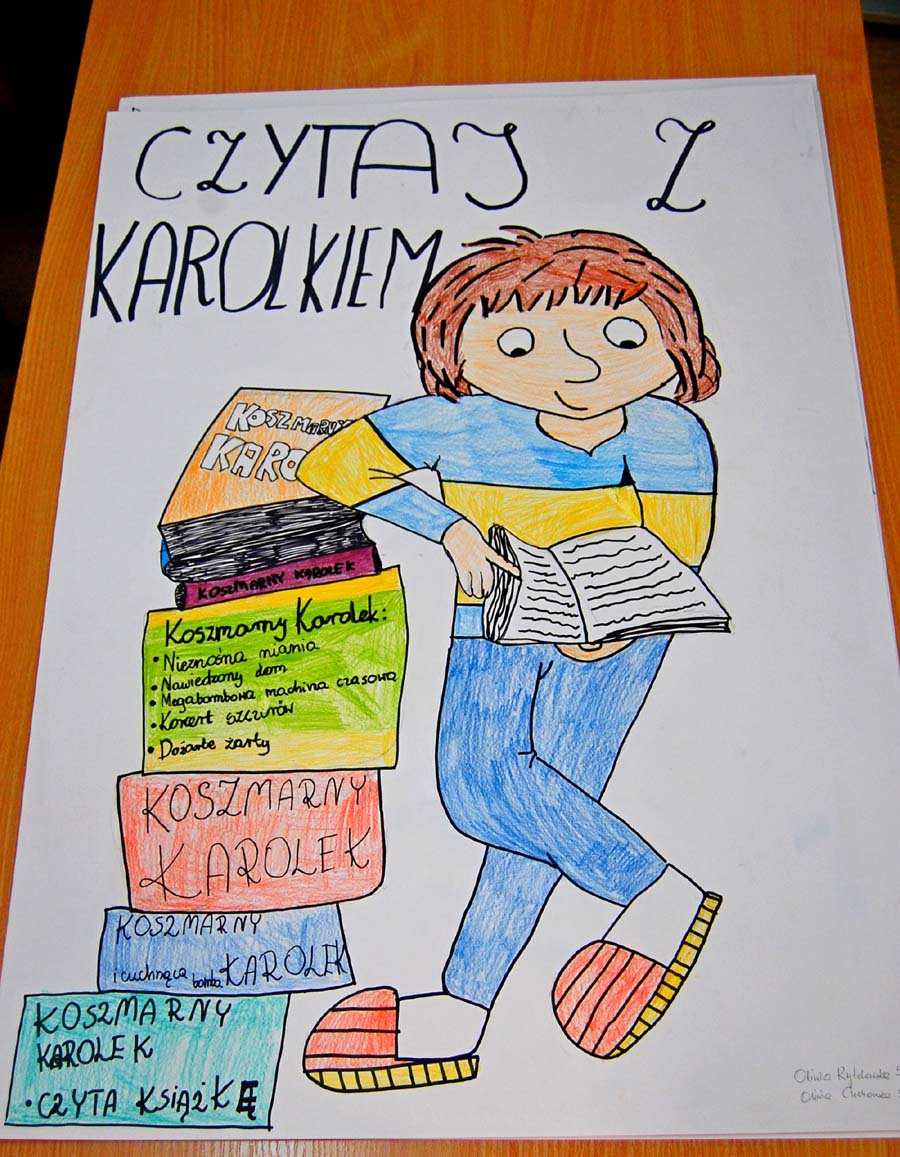 CZYTAJ Z
KAROLKIEM
KOSZMARNY
KARO
KOSZMARNY KAROLEK
Koszmarny Karolek:
• Nieznośna niania
• Nawiedzony dom
• Megabombowa machina czasowa
• Koncert szczurów
• Dożarte żarty
KOSZMARNY
KAROLEK
KOSZMARNY
i cuchnąca bomba KAROLEK
KOSZMARNY
KAROLEK
• CZYTA KSIĄŻKĘ
Oliwia
Oliwia